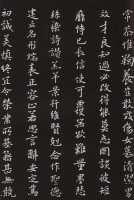 常恭惟鞠養豈敢毀傷女慕貞潔男
效才良知過必改得能莫忘罔談彼短
靡恃己長信使可覆器欲難量墨悲
絲染詩讚羔羊景行維賢剋念作聖德
建名立形端表正容止若思言辭安定篤
初誠美慎終宜令榮業所基籍甚無競